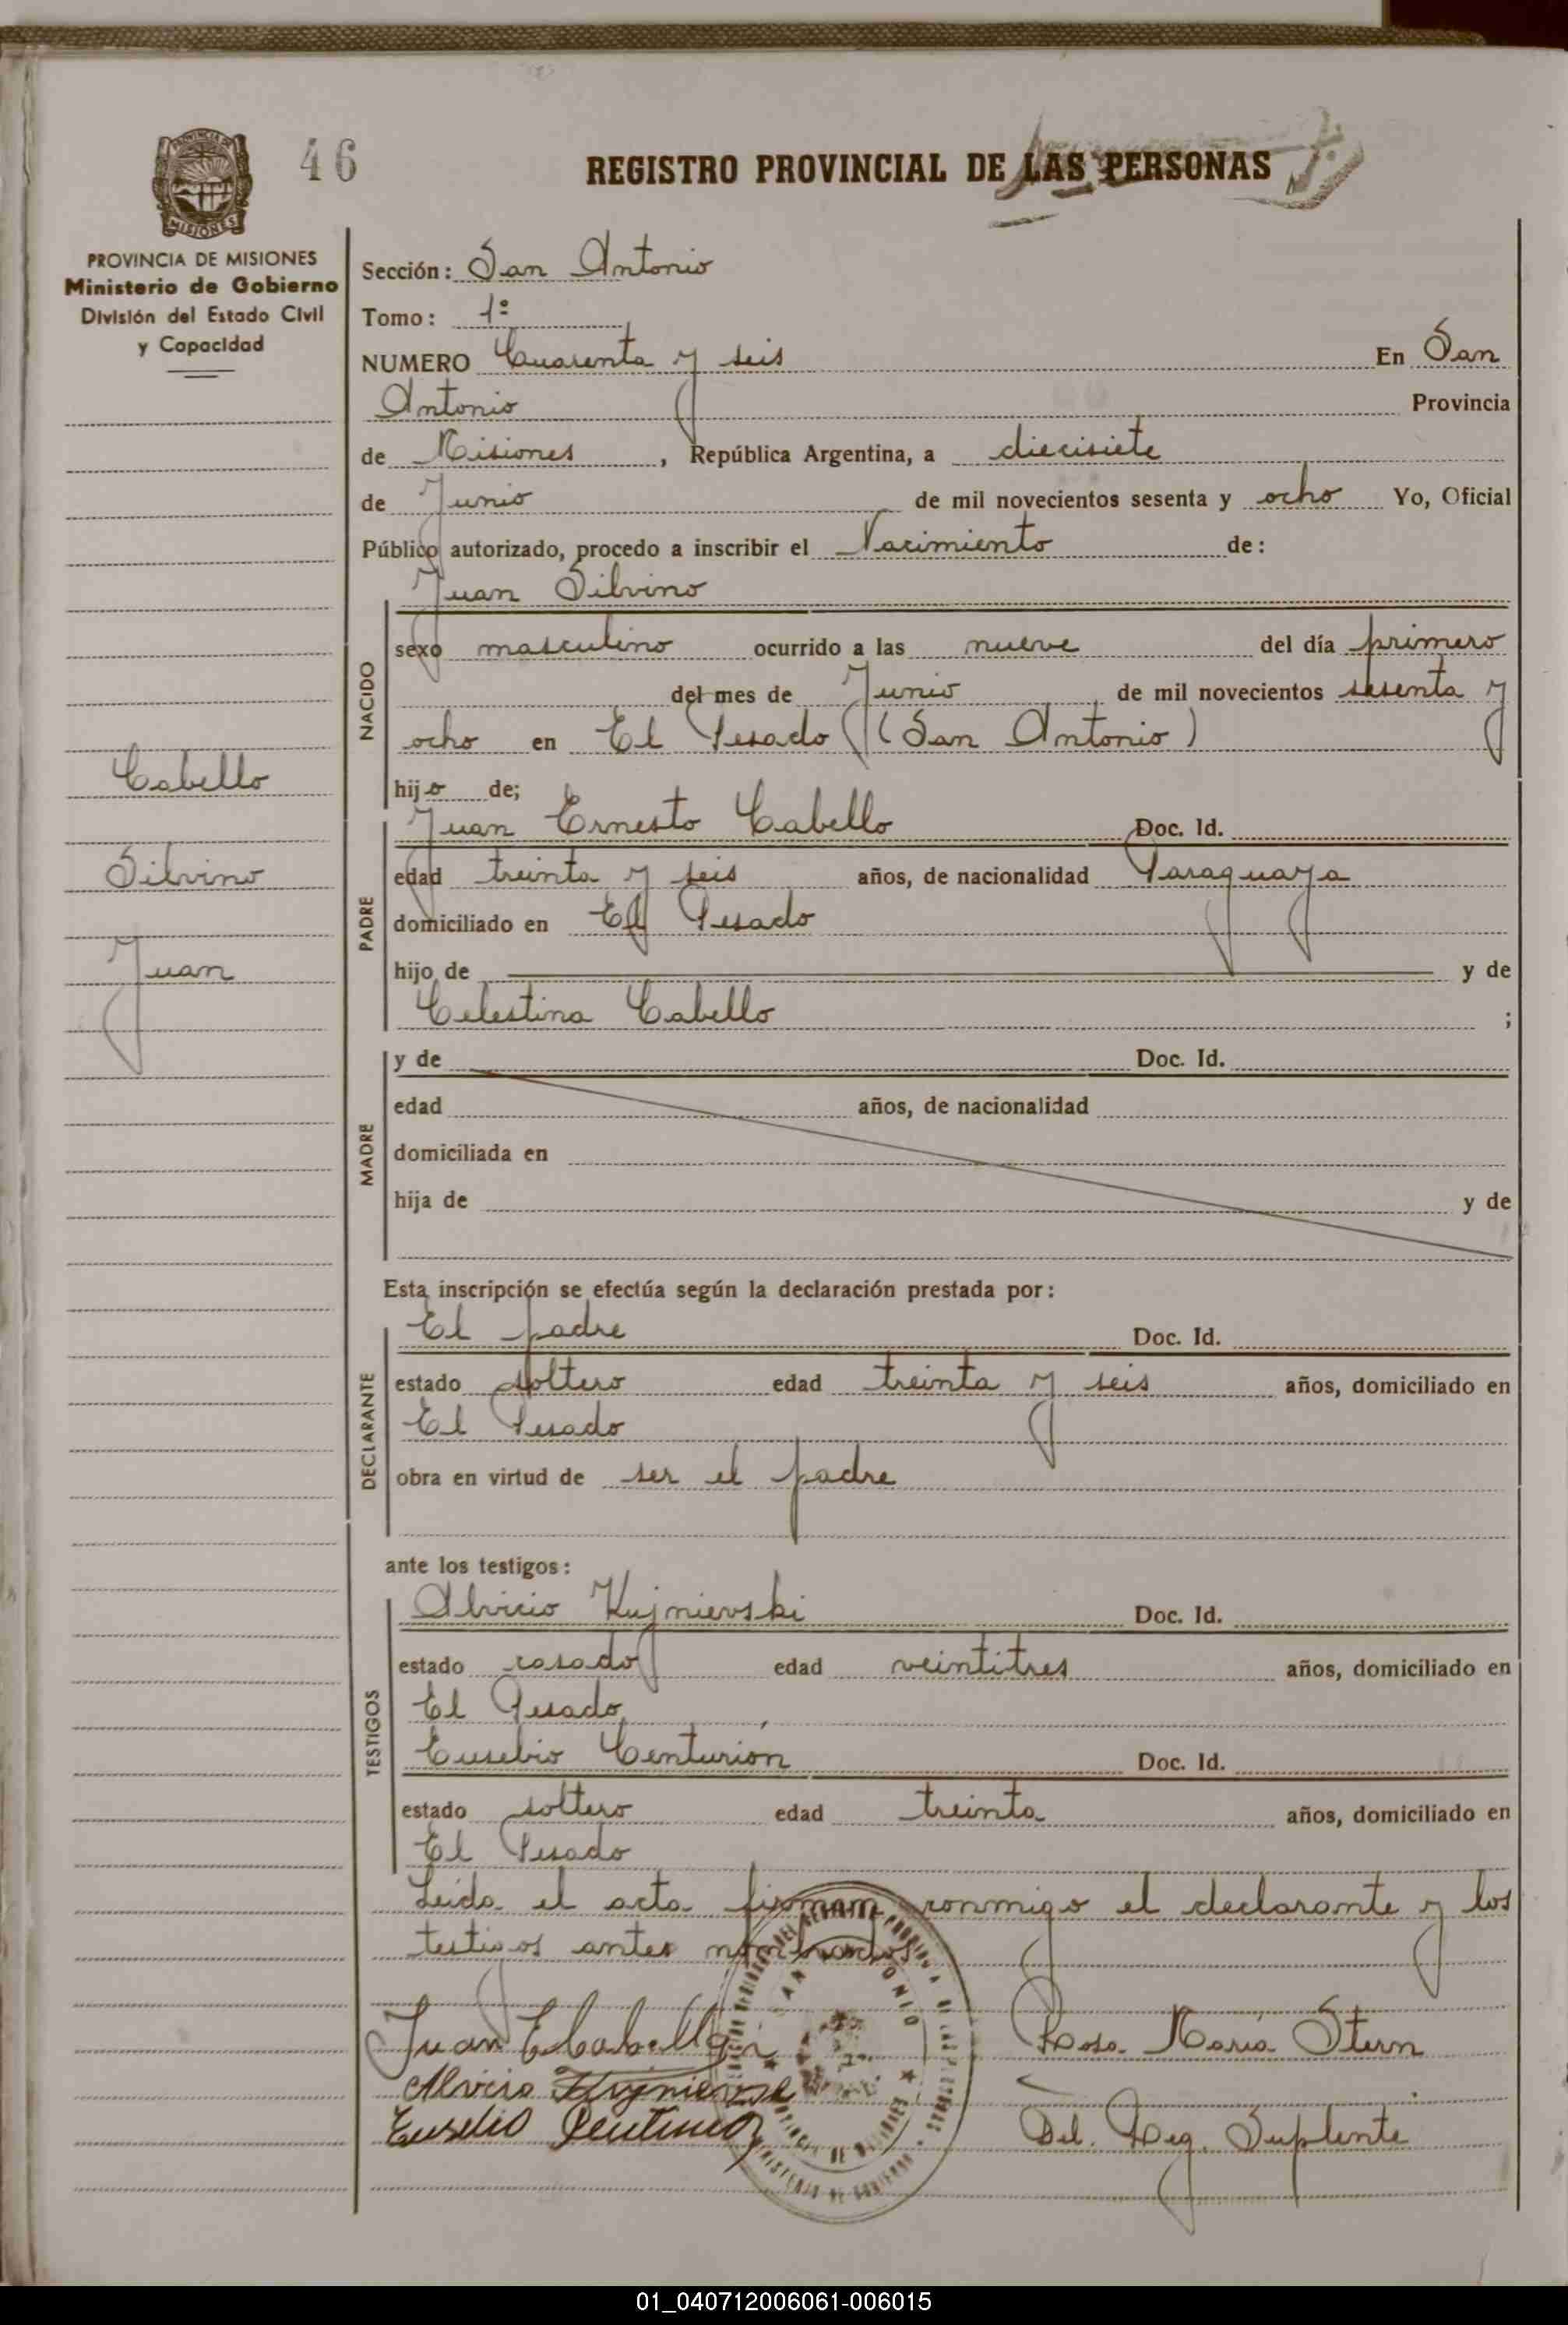 46
REGISTRO PROVINCIAL DE LAS PERSONAS
PROVINCIA DE MISIONES
Ministerio de Gobierno
División del Estado Civil
y Capacidad
Sección: San Antonio
Tomo: 1º
NUMERO Cuarenta y seis En San
Antonio Provincia
de Misiones, República Argentina, a diecisiete
de Junio de mil novecientos sesenta y ocho Yo, Oficial
Público autorizado, procedo a inscribir el Nacimiento de:
Juan Silvino
NACIDO
sexo masculino ocurrido a las nueve del día primero
del mes de Junio de mil novecientos sesenta y
ocho en El Pesado (San Antonio)
hijo de;
Cabello
Silvino
Juan
PADRE
Juan Ernesto Cabello Doc. Id.
edad treinta y seis años, de nacionalidad Paraguaya
domiciliado en El Pesado
hijo de y de
Celestina Cabello ;
MADRE
y de Doc. Id.
edad años, de nacionalidad
domiciliada en
hija de y de
Esta inscripción se efectúa según la declaración prestada por:
DECLARANTE
El padre Doc. Id.
estado soltero edad treinta y seis años, domiciliado en
El Pesado
obra en virtud de ser el padre
ante los testigos:
TESTIGOS
Alvicio Kujnievski Doc. Id.
estado casado edad veintitres años, domiciliado en
El Pesado
Eusebio Centurión Doc. Id.
estado soltero edad treinta años, domiciliado en
El Pesado
Leida el acta firmam conmigo el declarante y los
testigos antes nombrados
Juan E Cabello
Rosa Maria Stern
Alvicio
Eusebio
Del. Reg. Suplente
01_040712006061-006015